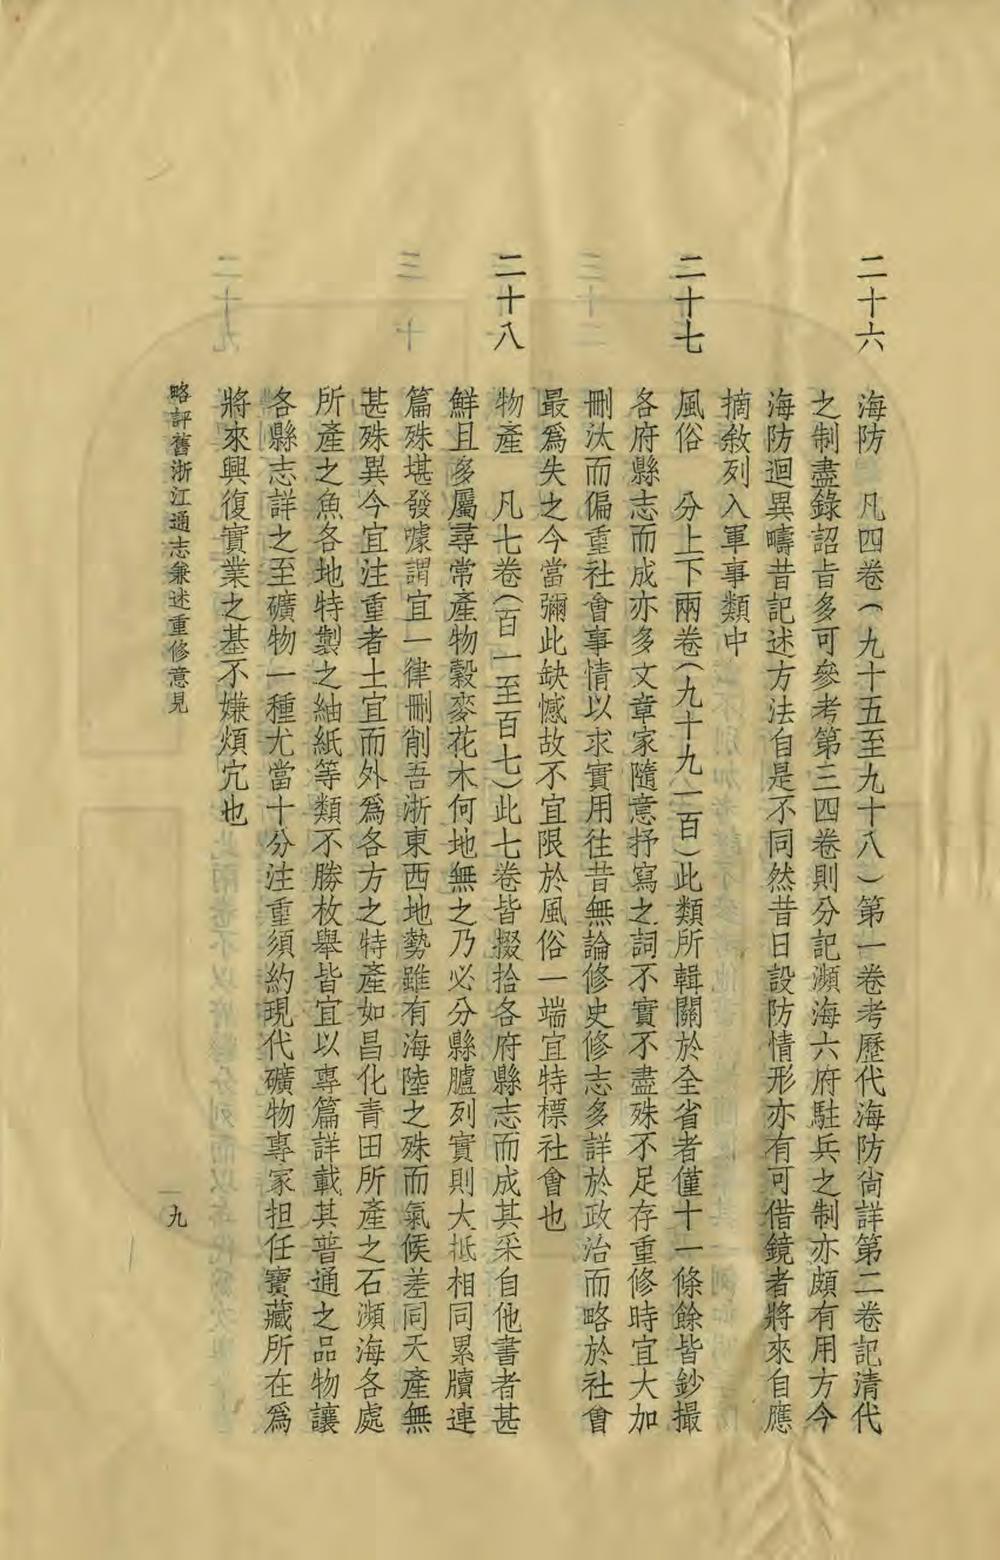 二十六 海防 凡四卷(九十五至九十八)第一卷考歷代海防尙詳第二卷記清代
之制盡錄詔旨多可參考第三四卷則分記瀕海六府駐兵之制亦頗有用方今
海防迴異疇昔記述方法自是不同然昔日設防情形亦有可借鏡者將來自應
摘敘列入軍事類中
二十七 風俗 分上下兩卷(九十九一百)此類所輯關於全省者僅十一條餘皆鈔撮
各府縣志而成亦多文章家隨意抒寫之詞不實不盡殊不足存重修時宜大加
刪汰而偏重社會事情以求實用往昔無論修史修志多詳於政治而略於社會
最爲失之今當彌此缺憾故不宜限於風俗一端宜特標社會也
二十八 物產 凡七卷(百一至百七)此七卷皆掇拾各府縣志而成其采自他書者甚
鮮且多屬尋常產物穀麥花木何地無之乃必分縣臚列實則大抵相同累牘連
篇殊堪發噱謂宜一律刪削吾浙東西地勢雖有海陸之殊而氣候差同天產無
甚殊異今宜注重者土宜而外爲各方之特產如昌化青田所產之石瀕海各處
所產之魚各地特製之紬紙等類不勝枚舉皆宜以專篇詳載其普通之品物讓
各縣志詳之至礦物一種尤當十分注重須約現代礦物專家担任寶藏所在爲
將來興復實業之基不嫌煩宂也
略評舊浙江通志兼述重修意見
一九